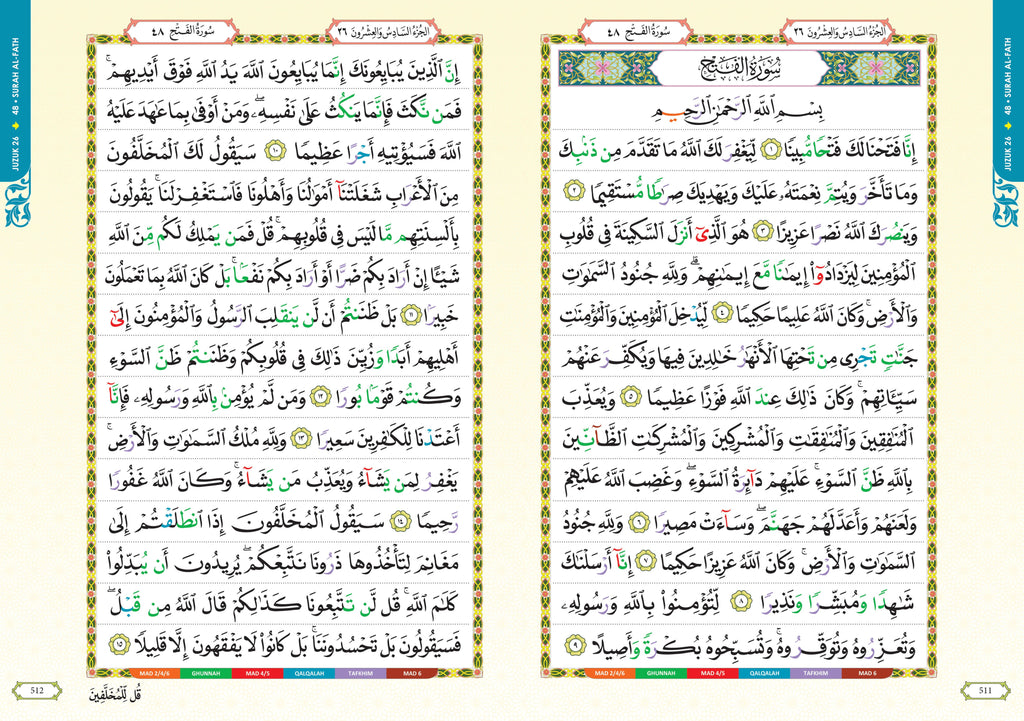 JUZUK 26 ➔ 48 • SURAH AL-FATH
الجُزْءُ السَّادِسُ وَالعِشْرُونَ ٢٦
سُورَةُ الفَتْحِ ٤٨
سُورَةُ الفَتْحِ
بِسْمِ ٱللَّهِ ٱلرَّحْمَٰنِ ٱلرَّحِيمِ
إِنَّا فَتَحْنَا لَكَ فَتْحًا مُّبِينًا ١ لِّيَغْفِرَ لَكَ ٱللَّهُ مَا تَقَدَّمَ مِن ذَنۢبِكَ
وَمَا تَأَخَّرَ وَيُتِمَّ نِعْمَتَهُۥ عَلَيْكَ وَيَهْدِيَكَ صِرَٰطًا مُّسْتَقِيمًا ٢
وَيَنصُرَكَ ٱللَّهُ نَصْرًا عَزِيزًا ٣ هُوَ ٱلَّذِىٓ أَنزَلَ ٱلسَّكِينَةَ فِى قُلُوبِ
ٱلْمُؤْمِنِينَ لِيَزْدَادُوٓا۟ إِيمَٰنًا مَّعَ إِيمَٰنِهِمْ ۗ وَلِلَّهِ جُنُودُ ٱلسَّمَٰوَٰتِ
وَٱلْأَرْضِ ۚ وَكَانَ ٱللَّهُ عَلِيمًا حَكِيمًا ٤ لِّيُدْخِلَ ٱلْمُؤْمِنِينَ وَٱلْمُؤْمِنَٰتِ
جَنَّٰتٍ تَجْرِى مِن تَحْتِهَا ٱلْأَنْهَٰرُ خَٰلِدِينَ فِيهَا وَيُكَفِّرَ عَنْهُمْ
سَيِّـَٔاتِهِمْ ۚ وَكَانَ ذَٰلِكَ عِندَ ٱللَّهِ فَوْزًا عَظِيمًا ٥ وَيُعَذِّبَ
ٱلْمُنَٰفِقِينَ وَٱلْمُنَٰفِقَٰتِ وَٱلْمُشْرِكِينَ وَٱلْمُشْرِكَٰتِ ٱلظَّآنِّينَ
بِٱللَّهِ ظَنَّ ٱلسَّوْءِ ۚ عَلَيْهِمْ دَآئِرَةُ ٱلسَّوْءِ ۖ وَغَضِبَ ٱللَّهُ عَلَيْهِمْ
وَلَعَنَهُمْ وَأَعَدَّ لَهُمْ جَهَنَّمَ ۖ وَسَآءَتْ مَصِيرًا ٦ وَلِلَّهِ جُنُودُ
ٱلسَّمَٰوَٰتِ وَٱلْأَرْضِ ۚ وَكَانَ ٱللَّهُ عَزِيزًا حَكِيمًا ٧ إِنَّآ أَرْسَلْنَٰكَ
شَٰهِدًا وَمُبَشِّرًا وَنَذِيرًا ٨ لِّتُؤْمِنُوا۟ بِٱللَّهِ وَرَسُولِهِۦ
وَتُعَزِّرُوهُ وَتُوَقِّرُوهُ ۚ وَتُسَبِّحُوهُ بُكْرَةً وَأَصِيلًا ٩
MAD 2/4/6 GHUNNAH MAD 4/5 QALQALAH TAFKHIM MAD 6
511
JUZUK 26 ➔ 48 • SURAH AL-FATH
الجُزْءُ السَّادِسُ وَالعِشْرُونَ ٢٦
سُورَةُ الفَتْحِ ٤٨
إِنَّ ٱلَّذِينَ يُبَايِعُونَكَ إِنَّمَا يُبَايِعُونَ ٱللَّهَ يَدُ ٱللَّهِ فَوْقَ أَيْدِيهِمْ ۚ
فَمَن نَّكَثَ فَإِنَّمَا يَنكُثُ عَلَىٰ نَفْسِهِۦ ۖ وَمَنْ أَوْفَىٰ بِمَا عَٰهَدَ عَلَيْهُ
ٱللَّهَ فَسَيُؤْتِيهِ أَجْرًا عَظِيمًا ١٠ سَيَقُولُ لَكَ ٱلْمُخَلَّفُونَ
مِنَ ٱلْأَعْرَابِ شَغَلَتْنَآ أَمْوَٰلُنَا وَأَهْلُونَا فَٱسْتَغْفِرْ لَنَا ۚ يَقُولُونَ
بِأَلْسِنَتِهِم مَّا لَيْسَ فِى قُلُوبِهِمْ ۚ قُلْ فَمَن يَمْلِكُ لَكُم مِّنَ ٱللَّهِ
شَيْـًٔا إِنْ أَرَادَ بِكُمْ ضَرًّا أَوْ أَرَادَ بِكُمْ نَفْعًۢا ۚ بَلْ كَانَ ٱللَّهُ بِمَا تَعْمَلُونَ
خَبِيرًۢا ١١ بَلْ ظَنَنتُمْ أَن لَّن يَنقَلِبَ ٱلرَّسُولُ وَٱلْمُؤْمِنُونَ إِلَىٰٓ
أَهْلِيهِمْ أَبَدًا وَزُيِّنَ ذَٰلِكَ فِى قُلُوبِكُمْ وَظَنَنتُمْ ظَنَّ ٱلسَّوْءِ
وَكُنتُمْ قَوْمًۢا بُورًا ١٢ وَمَن لَّمْ يُؤْمِنۢ بِٱللَّهِ وَرَسُولِهِۦ فَإِنَّآ
أَعْتَدْنَا لِلْكَٰفِرِينَ سَعِيرًا ١٣ وَلِلَّهِ مُلْكُ ٱلسَّمَٰوَٰتِ وَٱلْأَرْضِ ۚ
يَغْفِرُ لِمَن يَشَآءُ وَيُعَذِّبُ مَن يَشَآءُ ۚ وَكَانَ ٱللَّهُ غَفُورًا
رَّحِيمًا ١٤ سَيَقُولُ ٱلْمُخَلَّفُونَ إِذَا ٱنطَلَقْتُمْ إِلَىٰ
مَغَانِمَ لِتَأْخُذُوهَا ذَرُونَا نَتَّبِعْكُمْ ۖ يُرِيدُونَ أَن يُبَدِّلُوا۟
كَلَٰمَ ٱللَّهِ ۚ قُل لَّن تَتَّبِعُونَا كَذَٰلِكُمْ قَالَ ٱللَّهُ مِن قَبْلُ ۖ
فَسَيَقُولُونَ بَلْ تَحْسُدُونَنَا ۚ بَلْ كَانُوا۟ لَا يَفْقَهُونَ إِلَّا قَلِيلًا ١٥
MAD 2/4/6 GHUNNAH MAD 4/5 QALQALAH TAFKHIM MAD 6
قُل لِّلْمُخَلَّفِينَ
512